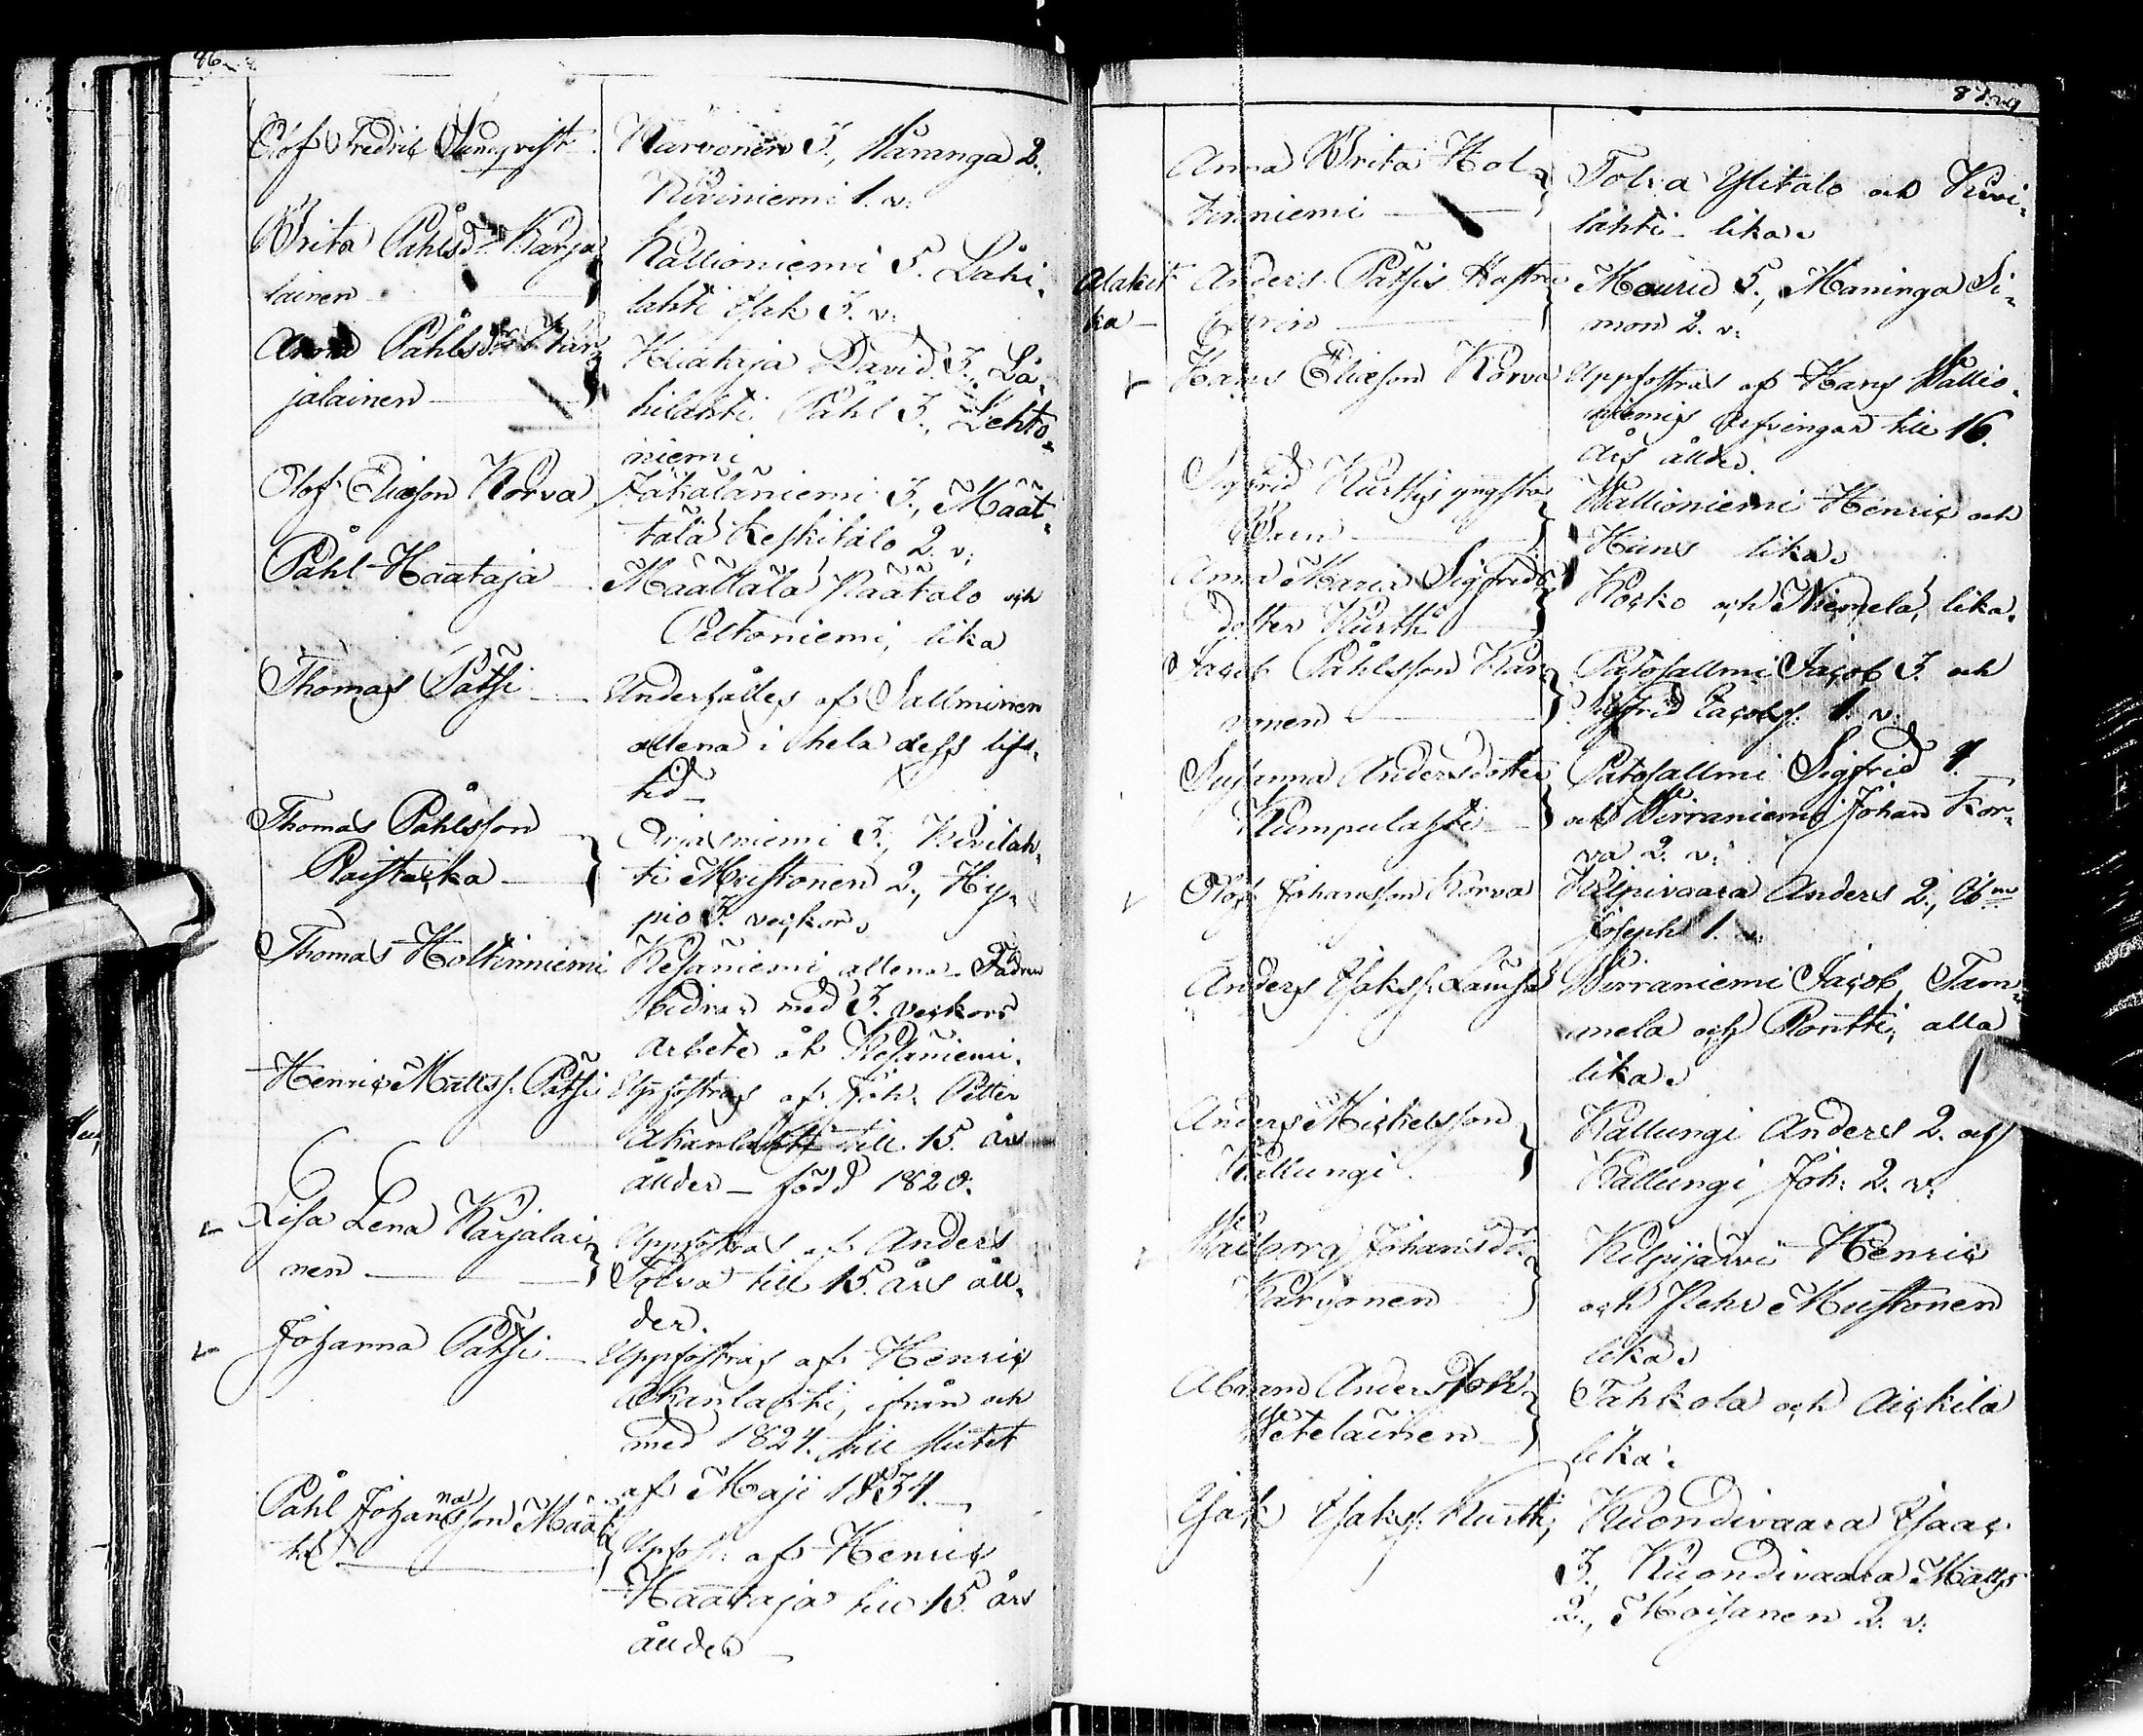 86
Olof Fredric Sundqvist
Karvonen 3., Måninga 2.
Kiviniemi 1. v:
Brita Påhlsdr Karja
lainen
Kallioniemi 5. Lahi
lahti Isak 3. v:
Anna Påhlsdr Kar
jalainen
Haataja David 3., La
hilahti Påhl 3., Lehto
niemi
Olof Eliæson Korva
Jäkäläniemi 3., Määt
tälä Keskitalo 2. v:
Påhl Haataja
Määttälä Päätalo och
Peltoniemi, lika
Thomas Pätsi
Underhålles af Sallminen
allena i hela dess lifs
tid
Thomas Påhlsson
Paistacka
Arjasniemi 3., Kivilah
ti Mustonen 2., Hy
piö 3. veckor
Thomas Holtinniemi
Kesäniemi allena. Fadren
bidrar med 3. veckors
arbete åt Kesäniemi.
Henric Mattss. Pätsi
Upfostras af Joh: Petter
Akanlahti till 15. års
ållder – född 1820.
Lisa Lena Karjalai
nen
Uppfostras af Anders
Tolva till 15. års åll
der.
Johanna Pätsi
Uppfostras af Henric
Akanlahti, ifrån och
med 1824. till slutet
af Maji 1834.
Påhl Johannasson Määttä
Upfost: af Henric
Haataja till 15. års
ållder
87
Anna Brita Hol
tinniemi
Tolva Ylitalo och Kivi
lahti lika
Alakit
ka
Anders Pätsis Hustru
Mouru 5., Maninga Si
mon 2. v:
Hans Eliæson Korva
Uppfostras af Hans Kallio
niemis arfvingar till 16.
års ållder.
Sigfrid Kurttis yngsta
Barn
Kallioniemi Henric och
Hans lika
Anna Maria Sigfrids
dotter Kurtti
Kocko och Niemelä, lika.
Jacob Påhlsson Kar
vonen
Patosallmi Jacob 3. och
Sigfrid Jacobs. 1. v:
Susanna Andersdotter
Kumpulasti
Patosallmi Sigfrid 1.
och Virraniemi Johan Kor
va 2. v:
Olof Johansson Korva
Kilpivaara Anders 2., Ibm
Joseph 1. v.
Anders Isaks. Lauha
Virraniemi Jacob, Tam
mela och Pontti, alla
lika
Anders Mickelsson
Kallungi
Kallungi Anders 2. och
Kallungi Joh: 2. v:
Valborg Johansdr
Karvonen
Kilpijärvi Henric
och Pehr Mustonen
lika
Abram Andersson
Vetelainen
Tahkola och Aickila
lika
Isak Isaks. Kurtti
Kuondivaara Isaac
3., Kuondivaara Matts
2., Moisanen 2. v: